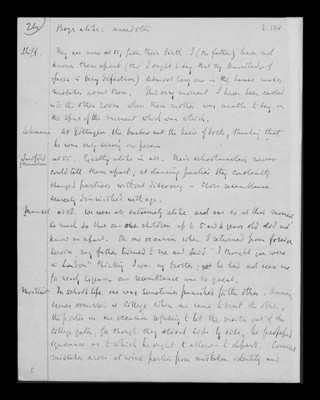 24) Boys alike. anecdotes
Shift. They are now at 19, from their birth I (the father) have not
known them apart (tho' I ought to say that my knowledge of
faces is very defective) almost every one in the house makes
mistakes about them. This very moment I have been called
into the other room when their mother was unable to say on
the spur of the moment which was which.
at Göttingen the barber cut the hair of both, thinking that
he was only serving one person
at 55. Greatly alike in all. Their schoolmasters never
could tell them apart; at dancing parties they constantly
changed partners without discovery – close resemblance
scarcely diminished with age.
at 58. We were all extremely alike and are so at this moment
so much so that our children up to 5 and 6 years old did not
know us apart. On one occasion when I returned from foreign
service my father turned to me and said "I thought you were
in London" thinking I was my brother; yet he had not seen me
for nearly
In school life one was sometimes punished for the other. Among
scenes occurred at College when one came to visit the other,
the porter on one occasion refusing to let the visitor out of the
college gates, for though they stood side by side, he professed
ignorance as to which he ought to allow to depart. Comical
mistakes arose at wine parties from mistaken identity and